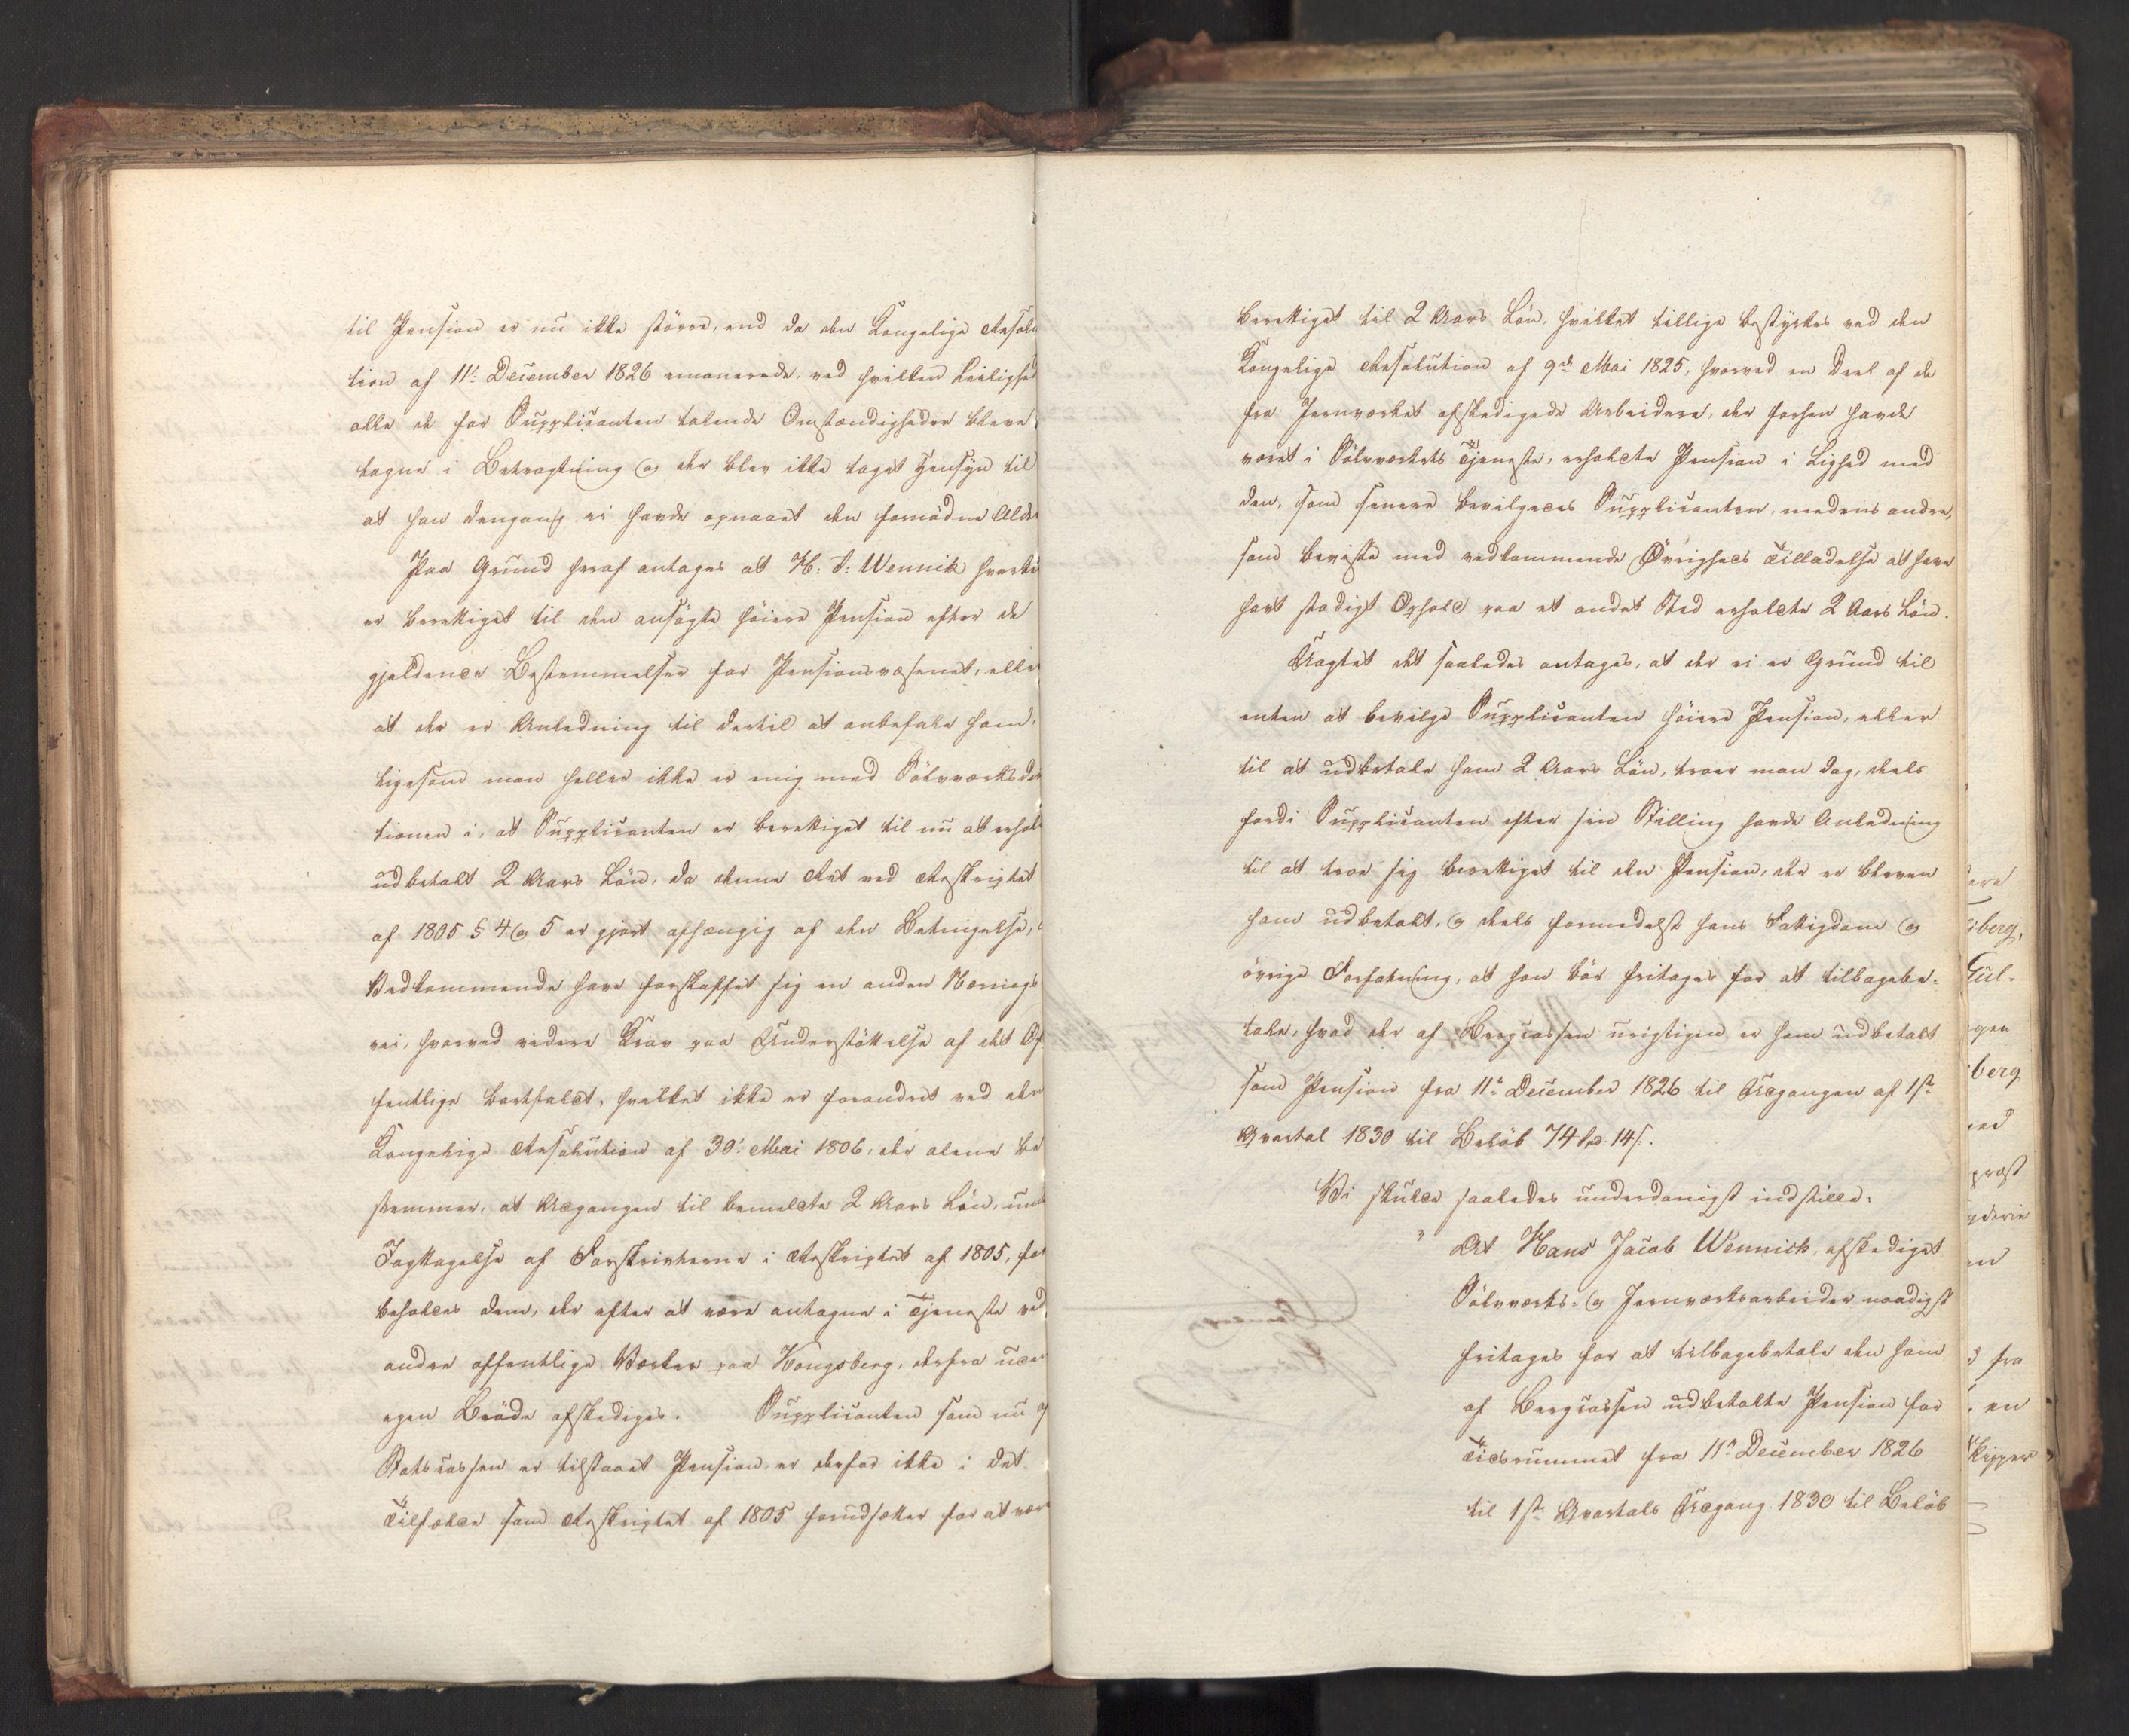 til Pension er nu ikke större, end da den Kongelige Resolu
tion af 11te December 1826 emanerede, ved hvilken Leilighed
alle de for Supplicanten talende Omstændigheder bleve
tagne i Betragtning og der blev ikke taget Hensyn til
at han dengang ei havde opnaaet den fornödne Alder
Paa Grund heraf antages at H: J: Wennik hverken
er berettiget til den ansögte höiere Pension efter de
gjeldende Bestemmelser for Pensionsvæsenet, eller
at der er Anledning til dertil at anbefale ham,
ligesom man heller ikke er enig med Sölvværksdirec
tionen i, at Supplicanten er berettiget til nu at erhol
udbetalt 2 Aars Lön, da denne Ret ved Rescriptet
af 1805 § 4 og 5 er gjort afhængig af den Betingelse,
Vedkommende have forskaffet sig en anden Nærings
vei, hvorved videre Krav paa Understöttelse af det Of
fentlige bortfaldt, hvilket ikke er forandret ved den
Kongelige Resolution af 30te Mai 1806, der alene be
stemmer, at Adgangen til bemeldte 2 Aars Lön, under
Iagttagelse af Forskrivterne i Rescriptet af 1805, for
beholdes dem, der efter at være antagne i Tjeneste ved
andre offentlige Værker paa Kongsberg, derfra uden
egen Bröde afskediges. Supplicanten som nu af
Statscassen er tilstaaet Pension, er derfor ikke i det
Tilfælde som Rescriptet af 1805 forudsætter for at være
berettiget til 2 Aars Lön, hvilket tillige bestyrkes ved den
Kongelige Resolution af 9de Mai 1825, hvorved en Deel af de
fra Jernværket afskedigede Arbeidere, der forhen havde
været i Sölvværkets Tjeneste, erholdte Pension i Lighed med
den, som senere bevilgedes Supplicanten, medens andre,
som beviste med vedkommende Øvrigheds Tilladelse at have
havt stadigt Ophold paa et andet Sted erholdte 2 Aars Lön.
Uagtet det saaledes antages, at der ei er Grund til
enten at bevilge Supplicanten höiere Pension, eller
til at udbetale ham 2 Aars Lön, troer man dog, deels
fordi Supplicanten efter sin Stilling havde Anledning
til at troe sig berettiget til den Pension, der er bleven
ham udbetalt, og deels formedelst hans Fattigdom og
övrige Forfatning, at han bör fritages for at tilbagebe-
tale, hvad der af Bergcassen urigtigen er ham udbetalt
som Pension fra 11te December 1826 til Udgangen af 1ste
Qvartal 1830 til Belöb 74 Spd: 14 s.
Vi skulde saaledes underdanigst indstille:
" At Hans Jacob Wennich, afskediget
Sölvværks- og Jernværksarbeider naadigst
fritages for at tilbagebetale den ham
af Bergcassen udbetalte Pension for
Tidsrummet fra 11te December 1826
til 1ste Qvartals Udgang 1830 til Belöb